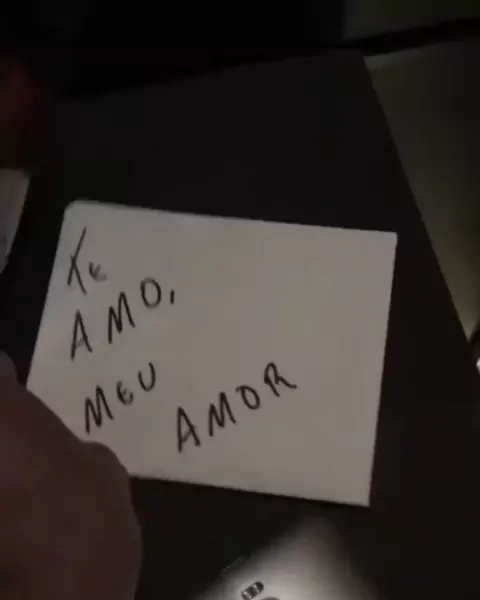 Te
AMO,
MEU
AMOR